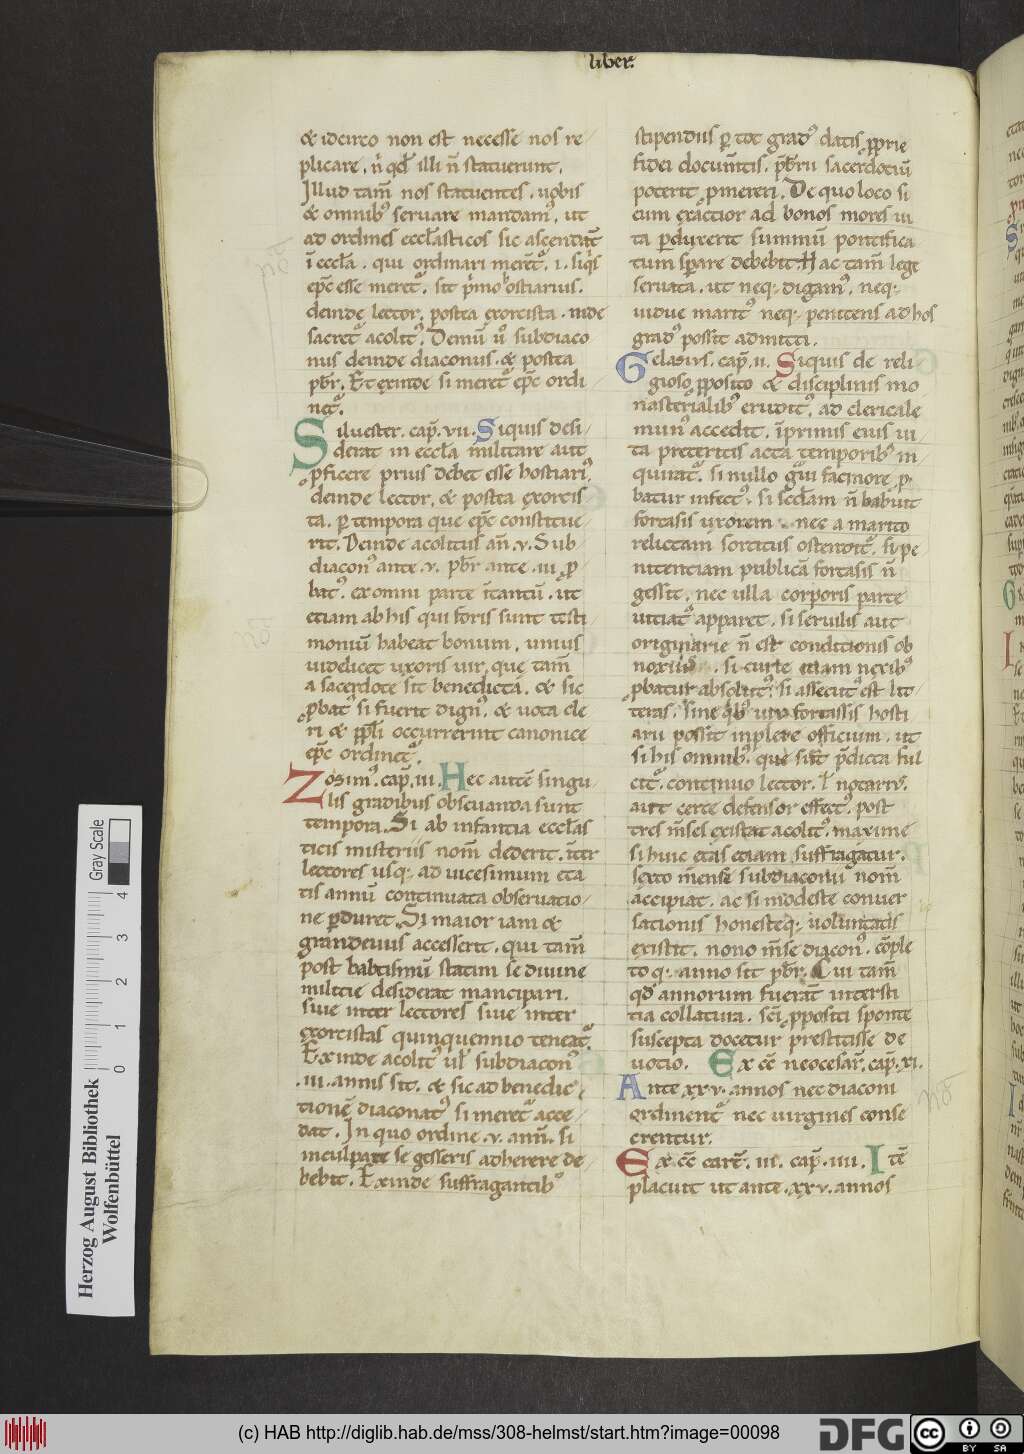 liber.
& idcirco non est necesse nos re
plicare. n̄ qd̄ illi n̄ statuerunt.
Illud tam̄ nos statuentes. uobis
& omnib᷒ seruare mandam᷒. ut
ad ordines eccl̄asticos sic ascendat̄
ī eccl̄a. qui ordinari meret᷑. i. siqͥs
ep̄c esse meret᷑. sit pͥmo ostiarius.
deinde lector. postea exorcista. inde
sacret᷑ acolit᷒. Demū uͦ subdiaco
nus deinde diaconus. & postea
pb̄r. Et exinde si meret᷑ ep̄c ordi
net᷑.
Siluester. cap̄. vii. Siquis desi
derat in eccl̄a militare aut
ꝓficere prius debet esse hostiari᷒.
deinde lector. & postea exorcis
ta. ꝑ tempora que ep̄c constitue
rit. Deinde acolitus an̄. v. Sub
diacon᷒ ante. v. pb̄r ante. iii. ꝓ
bat᷒. ex omni parte
etiam ab his qui foris sunt testi
moniū habeat bonum. unius
uidelicet uxoris uir. que tam̄
a sacerdote sit benedicta. & sic
ꝓbat᷒ si fuerit dign᷒. & uota cle
ri & pp̄li occurrerint canonice
ep̄c ordinet᷑.
Zosim᷒. cap̄. iii. Hec autē singu
lis gradibus obseruanda sunt
tempora. Si ab infantia eccl̄as
ticis misteriis nom̄ dederit. īter
lectores usq; ad uicesimum eta
tis annū continuata obseruatio
ne ꝑduret. Si maior iam &
grandeuus accesserit. qui tam̄
post babtismū statim se diuine
militie desiderat mancipari.
siue inter lectores siue inter
exorcistas quinquennio teneat᷑.
Exinde acolit᷒ ul̄ subdiacon᷒
.iii. annis sit. & sic ad benedic
tionē diaconat᷒ si meret᷑ acce
dat. In quo ordine. v. ann̄. si
inculpate se gesseris adherere de
bebit. Exinde suffragantib᷒
stipendiis ꝑ tot grad᷒ datis ꝓprie
fidei documtis. pb̄rii sacerdotiū
poterit ꝓmereri. De quo loco si
eum exactior ad bonos mores ui
ta ꝑduxerit summū pontifica
tum sꝑare debebit. ac tam̄ lege
seruata. ut neq; digam᷒. neq;
uidue marit᷒ neq; penitens ad hos
grad᷒ possit admitti.
Gelasius. cap̄. ii. Siquis de reli
gioso ꝓposito & disciplinis mo
nasterialib᷒ erudit᷒. ad clericale
mun᷒ accedit. īprimis eius ui
ta preteritis acta temporib᷒ in
quirat᷑. si nullo gͣui facinore ꝓ
batur infect᷒. si scdam n̄ habuit
fortasis uxorem nec a marito
relictam sortitus ostendit᷑. si pe
nitentiam publicā fortasis n̄
gessit. nec ulla corporis parte
uitiat᷒ apparet. si seruilis aut
originarie n̄ est conditionis ob
noxius. si curie etiam nexib᷒
ꝓbatur absolut᷒. si assecut᷒ est lit
teras. sine qͥb᷒ uix fortassis hosti
arii possit inplere officium. ut
si his omnib᷒. que sūt p̄dicta ful
cit᷑. continuo lector. l̄ notarii᷒.
aut certe defensor effect᷒. post
tres m̄ses existat acolit᷒. maxime
si huic etas etiam suffragatur.
sexto m̄ense subdiaconii nom̄
accipiat. ac si modeste conuer
sationis honesteq; uoluntatis
existit. nono m̄se diacon᷒. cōple
to q; anno sit pb̄r. Cui tam̄
qd̄ annorum fuerat intersti
tia collatura. sci ꝓpositi sponte
suscepta docetur prestitisse de
uotio. Ex cc̄ neocesar̄. cap̄. xi.
Ante xxv. annos nec diaconi
ordinent᷑ nec uirgines conse
crentur.
Ex cc̄ cart̄. iii. cap̄. iiii. Itē
placuit ut ante. xxv. annos
Gray Scale
0 1 2 3 4
Herzog August Bibliothek
Wolfenbüttel
(c) HAB http://diglib.hab.de/mss/308-helmst/start.htm?image=00098
DFG
cc
BY SA